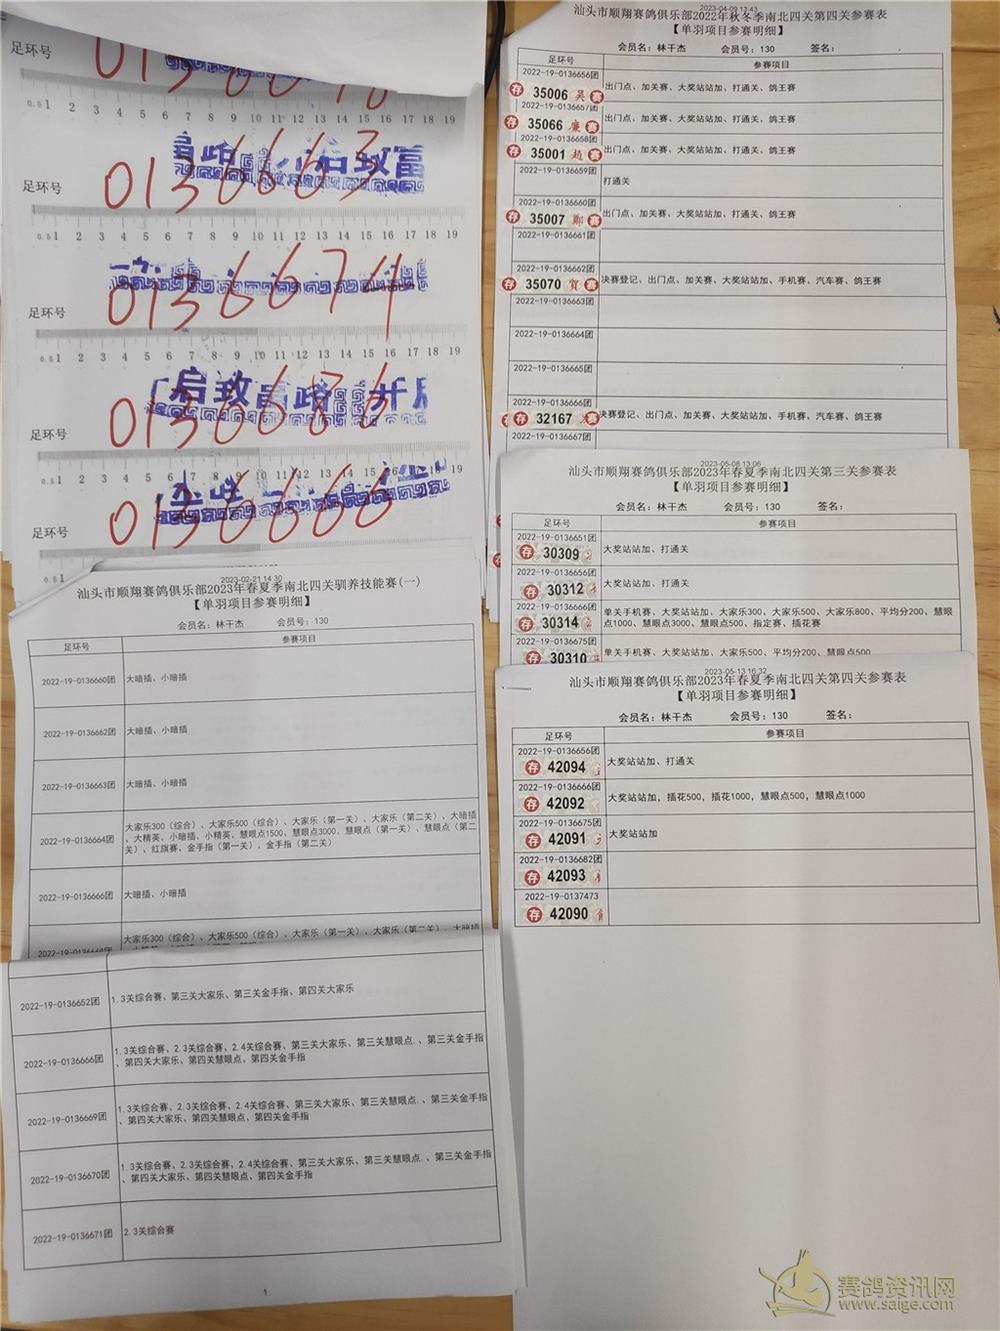 足环号
0.5 1 2 3 4 5 6 7 8 9 10 11 12 13 14 15 16 17 18 19
足环号
0136663
0.5 1 2 3 4 5 6 7 8 9 10 11 12 13 14 15 16 17 18 19
足环号
0136674
0.5 1 2 3 4 5 6 7 8 9 10 11 12 13 14 15 16 17 18 19
启致富路 开
足环号
01366
足环号
0136666
2023-02-21 14:30
汕头市顺翔赛鸽俱乐部2023年春夏季南北四关驯养技能赛(一)
【单羽项目参赛明细】
会员名：林干杰 会员号：130
足环号 参赛项目
2022-19-0136660团 大暗插、小暗插
2022-19-0136662团 大暗插、小暗插
2022-19-0136663团 大暗插、小暗插
2022-19-0136664团 大家乐300（综合）、大家乐500（综合）、大家乐（第一关）、大家乐（第二关）、大暗插
、大精英、小暗插、小精英、慧眼点1500、慧眼点3000、慧眼点（第一关）、慧眼点（第二
关）、红旗赛、金手指（第一关）、金手指（第二关）
2022-19-0136666团 大暗插、小暗插
大家乐300（综合）、大家乐500（综合）、大家乐（第一关）、大家乐（第二关）、大暗插
2022-19-0136652团 1.3关综合赛、第三关大家乐、第三关金手指、第四关大家乐
2022-19-0136666团 1.3关综合赛、2.3关综合赛、2.4关综合赛、第三关大家乐、第三关慧眼点.、第三关金手指
、第四关大家乐、第四关慧眼点、第四关金手指
2022-19-0136669团 1.3关综合赛、2.3关综合赛、2.4关综合赛、第三关大家乐、第三关慧眼点.、第三关金手指
、第四关大家乐、第四关慧眼点、第四关金手指
2022-19-0136670团 1.3关综合赛、2.3关综合赛、2.4关综合赛、第三关大家乐、第三关慧眼点.、第三关金手指
、第四关大家乐、第四关慧眼点、第四关金手指
2022-19-0136671团 2.3关综合赛
1
2023-04-09 13:43
汕头市顺翔赛鸽俱乐部2022年秋冬季南北四关第四关参赛表
【单羽项目参赛明细】
会员名：林干杰 会员号：130 签名：
足环号 参赛项目
2022-19-0136656团
存 35006 吴 赛 出门点、加关赛、大奖站站加、打通关、鸽王赛
2022-19-0136657团
存 35066 廉 赛 出门点、加关赛、大奖站站加、打通关、鸽王赛
2022-19-0136658团
存 35001 赵 赛 出门点、加关赛、大奖站站加、打通关、鸽王赛
2022-19-0136659团
打通关
2022-19-0136660团
存 35007 鄭 赛 出门点、加关赛、大奖站站加、打通关、鸽王赛
2022-19-0136661团
2022-19-0136662团
存 35070 賀 赛 决赛登记、出门点、加关赛、大奖站站加、手机赛、汽车赛、鸽王赛
2022-19-0136663团
2022-19-0136664团
2022-19-0136665团
2022-19-0136666团
存 32167 赛 决赛登记、出门点、加关赛、大奖站站加、手机赛、汽车赛、鸽王赛
2022-19-0136667团
2023-05-08 13:06
汕头市顺翔赛鸽俱乐部2023年春夏季南北四关第三关参赛表
【单羽项目参赛明细】
会员名：林干杰 会员号：130 签名：
足环号 参赛项目
2022-19-0136651团
存 30309 大奖站站加、打通关
2022-19-0136656团
存 30312 大奖站站加、打通关
2022-19-0136666团
存 30314 单关手机赛、大奖站站加、大家乐300、大家乐500、大家乐800、平均分200、慧眼
点1000、慧眼点3000、慧眼点500、指定赛、插花赛
2022-19-0136675团
存 30310 单关手机赛、大奖站站加、大家乐500、平均分200、慧眼点500
2023-05-13 16:32
汕头市顺翔赛鸽俱乐部2023年春夏季南北四关第四关参赛表
【单羽项目参赛明细】
会员名：林干杰 会员号：130 签名：
足环号 参赛项目
2022-19-0136656团
存 42094 大奖站站加、打通关
2022-19-0136666团
存 42092 大奖站站加，插花500，插花1000，慧眼点500，慧眼点1000
2022-19-0136675团
存 42091 大奖站站加
2022-19-0136682团
存 42093
2022-19-0137473
存 42090
赛鸽资讯网
www.saige.com